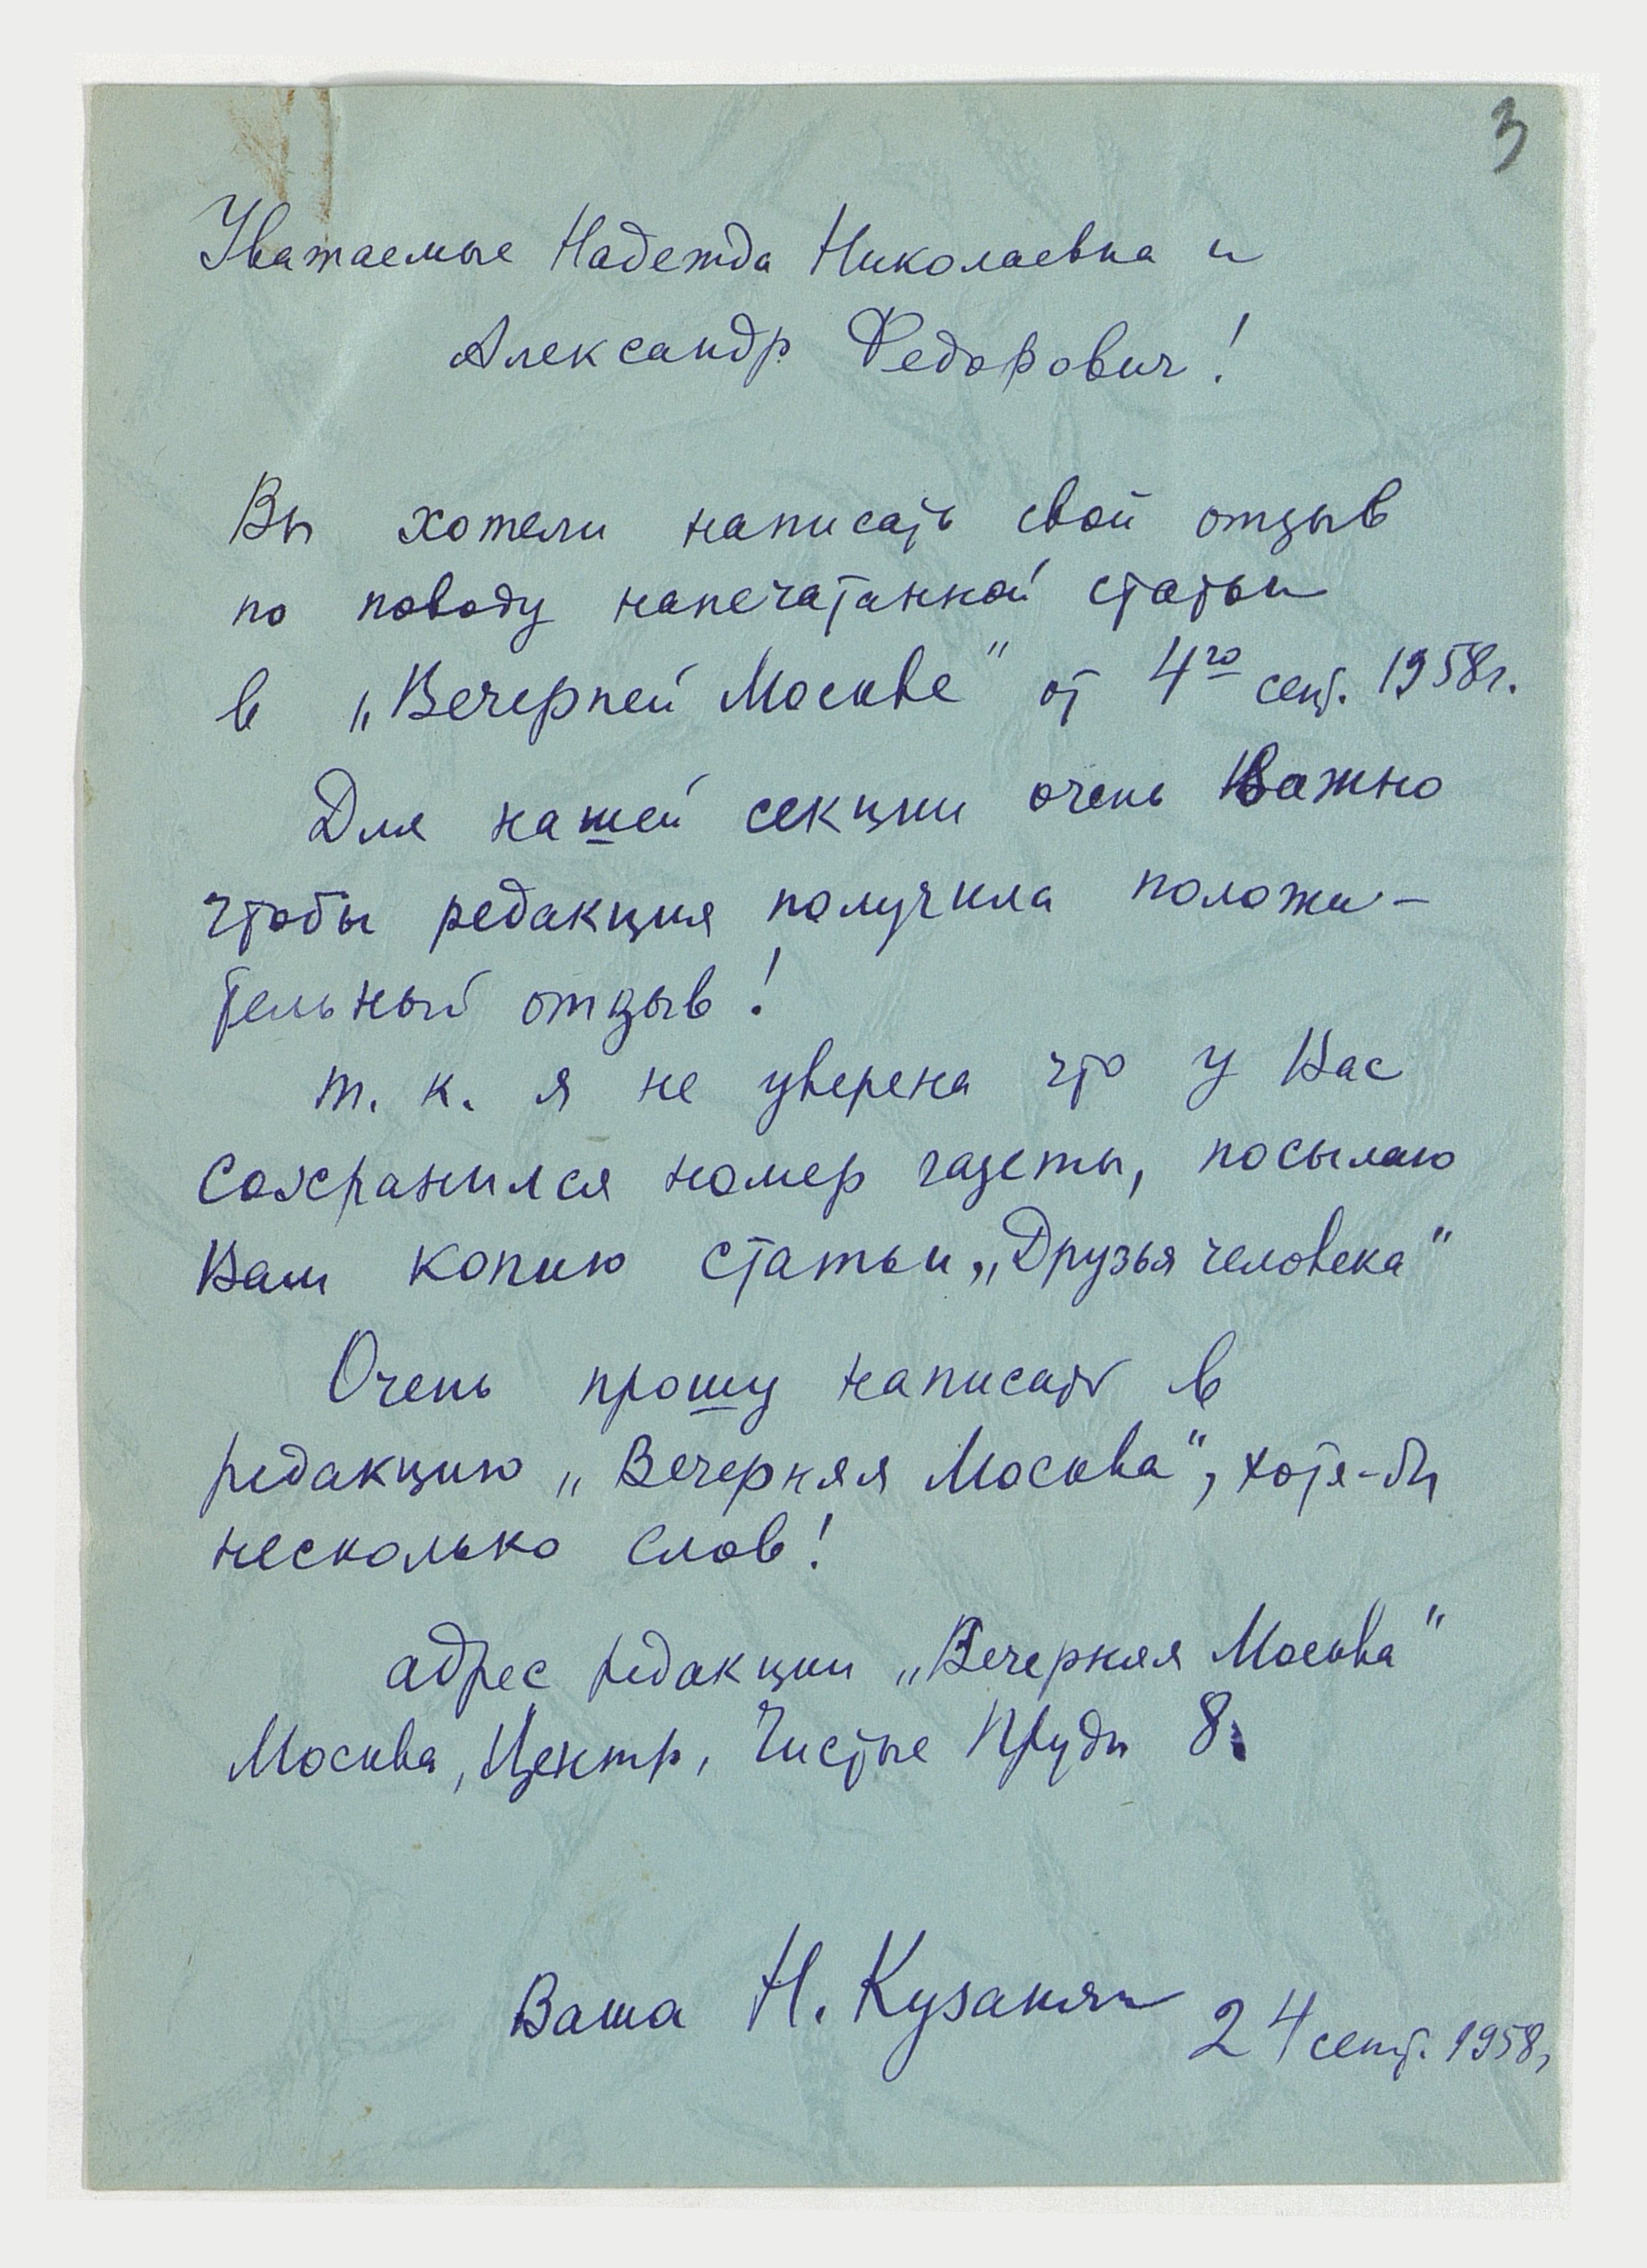 3
Уважаемые Надежда Николаевна и
Александр Федорович!
Вы хотели написать свой отзыв
по поводу напечатанной статьи
в „Вечерней Москве" от 4го сент. 1958г.
Для нашей секции очень важно
чтобы редакция получила положи-
тельный отзыв!
т. к. я не уверена что у Вас
сохранился номер газеты, посылаю
Вам копию статьи „Друзья человека"
Очень прошу написать в
редакцию „Вечерняя Москва", хотя-бы
несколько слов!
адрес редакции „Вечерняя Москва"
Москва, Центр, Чистые Пруды 8.
Ваша Н. Кузанян
24 сент. 1958г